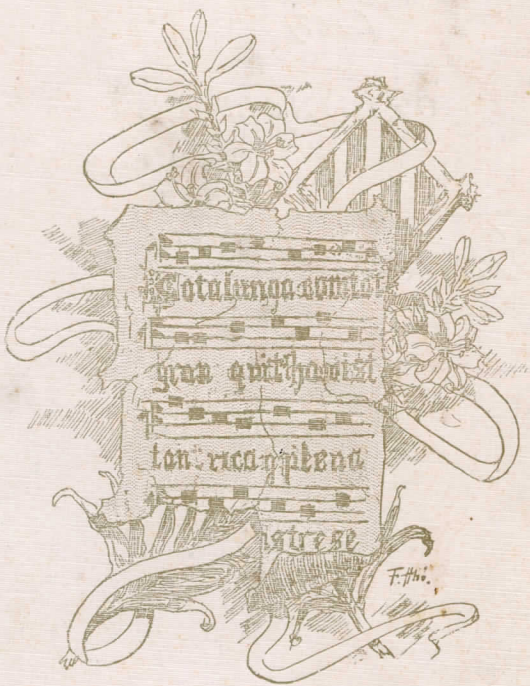 Catalunya comtat
gran quit havist
tan rica y plena